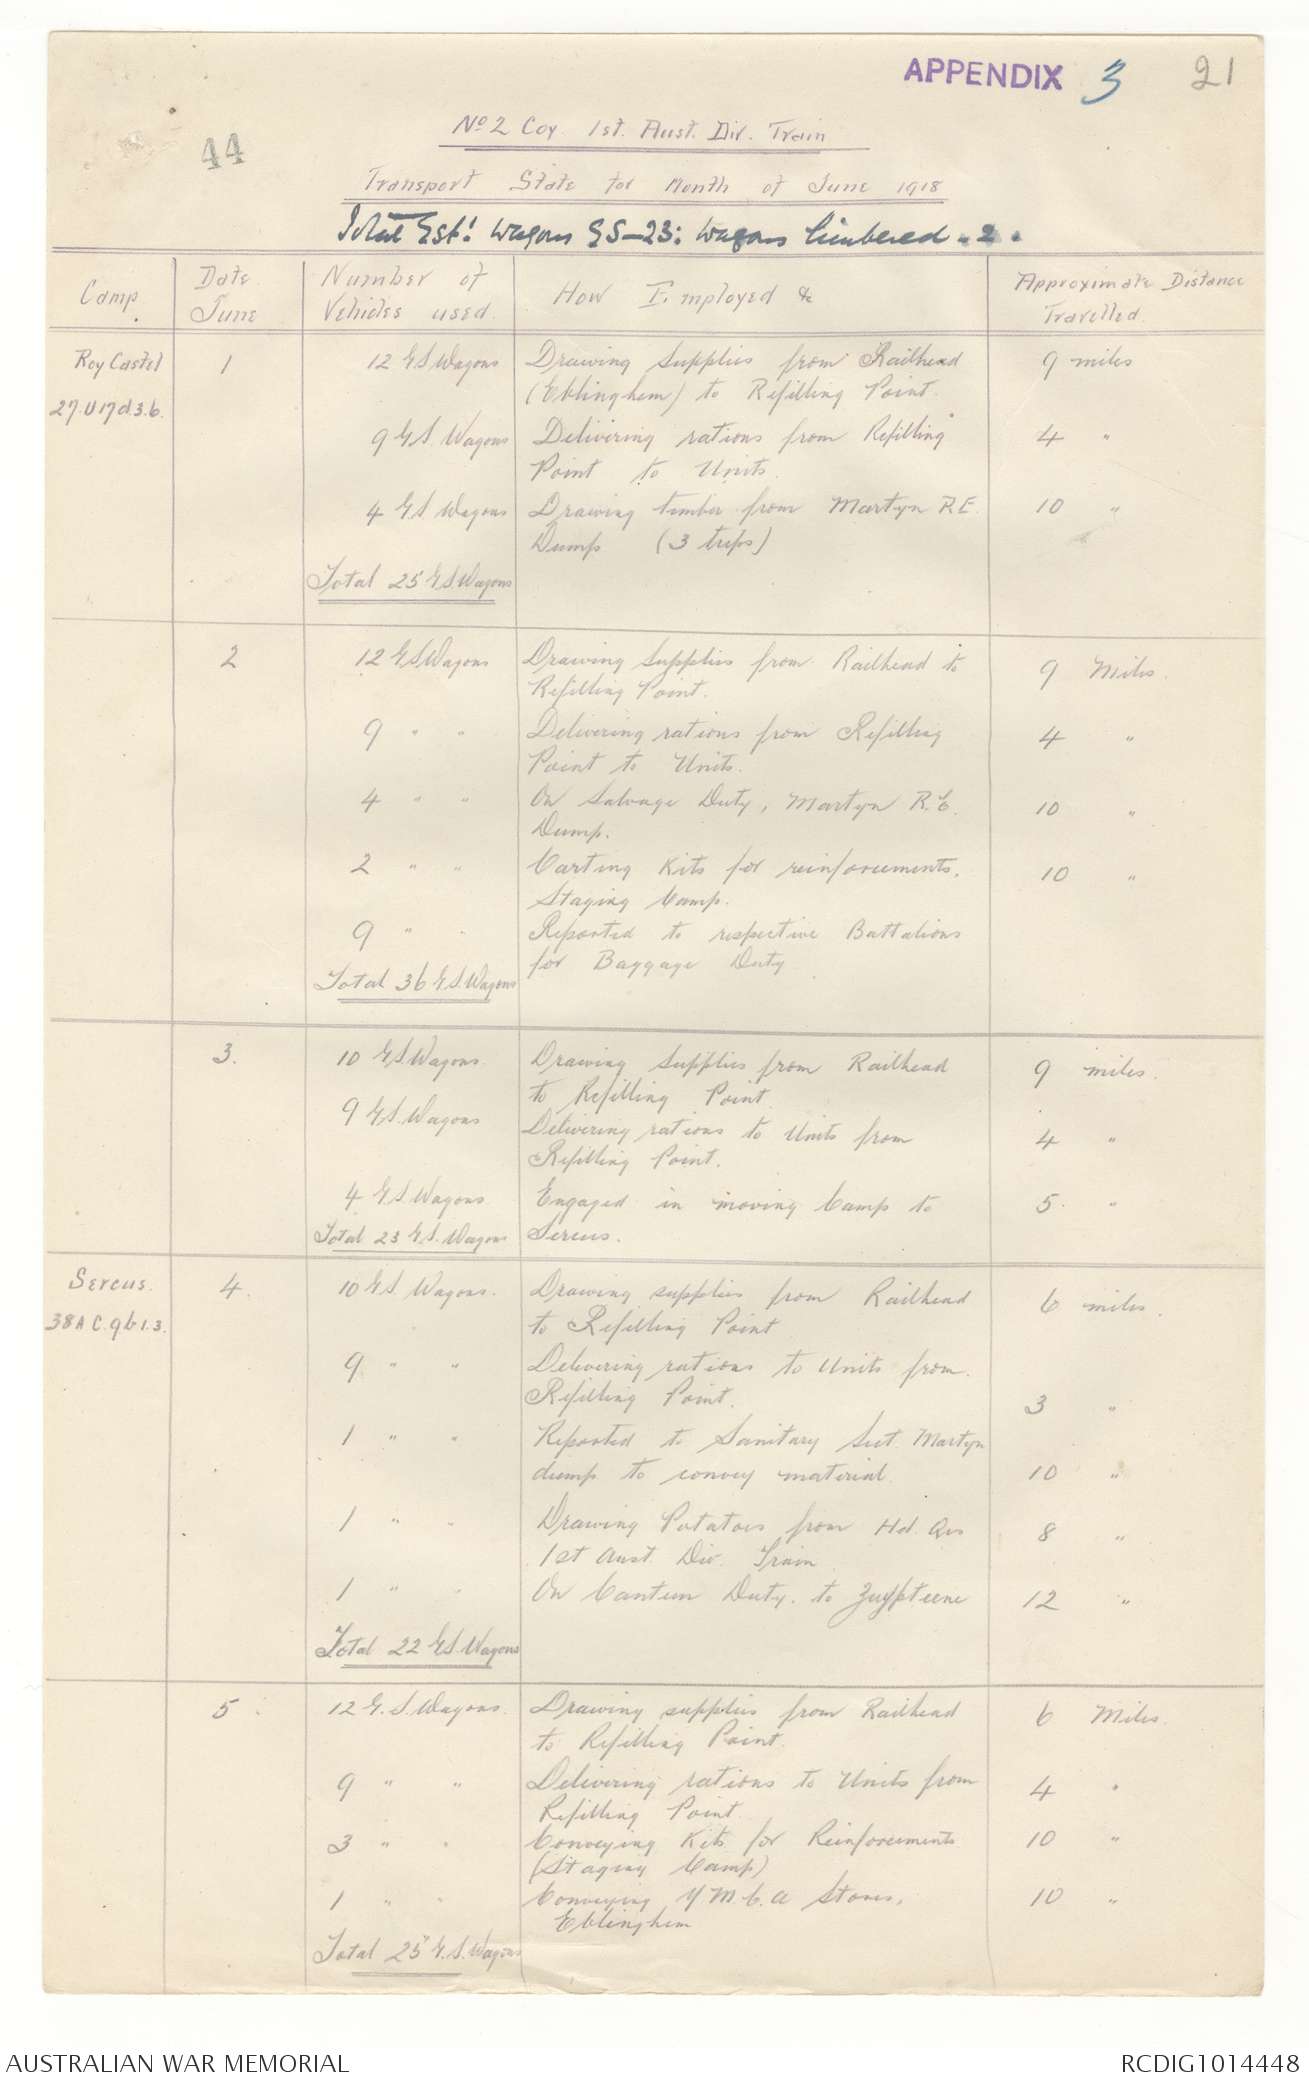 APPENDIX 3 21
44
No 2 Coy. 1st. Aust. Div. Train
Transport State for Month of June 1918
Total Est! Wagons GS-23: Wagons Limbered - 2.
Camp. Date June Number of Vehicles used. How Employed & Approximate Distance Travelled.
Roy Castel 1 12 G.S Wagons Drawing Supplies from Railhead 9 miles
27.U17d.3.6. (Ebblinghem) to Refilling Point.
9 G.S. Wagons Delivering rations from Refilling 4 "
Point to Units.
4 G.S Wagons Drawing timber from Martyn R.E. 10 "
Dump (3 trips)
Total 25 G.S Wagons
2 12 G.S Wagons Drawing Supplies from Railhead to 9 Miles.
Refilling Point.
9 " " Delivering rations from Refilling 4 "
Point to Units.
4 " " On Salvage Duty, Martyn R.E. 10 "
Dump.
2 " " Carting Kits for reinforcements, 10 "
Staging Camp.
9 " " Reported to respective Battalions
for Baggage Duty
Total 36 G.S. Wagons
3. 10 G.S Wagons. Drawing Supplies from Railhead 9 miles.
to Refilling Point
9 G.S. Wagons Delivering rations to Units from 4 "
Refilling Point.
4 G.S Wagons Engaged in moving Camp to 5. "
Total 23 G.S. Wagons Sercus.
Sercus. 4. 10 G.S Wagons. Drawing supplies from Railhead 6 miles.
38A C.9b.1.3. to Refilling Point
9 " " Delivering rations to Units from.
Refilling Point. 3 "
1 " " Reported to Sanitary Sect. Martyn
dump to convey material. 10 "
1 " " Drawing Potatoes from Hd. Qrs 8 "
1st Aust. Div. Train
1 " " On Canteen Duty. to Zuytpeene 12 "
Total 22 G.S. Wagons
5. 12 G.S. Wagons. Drawing supplies from Railhead 6 Miles.
to Refilling Point.
9 " " Delivering rations to Units from 4 "
Refilling Point.
3 " " Conveying Kits for Reinforcements 10 "
(Staging Camp)
1 " " Conveying Y.M.C.A Stores, 10 "
Ebblinghem
Total 25 G.S. Wagons
AUSTRALIAN WAR MEMORIAL RCDIG1014448